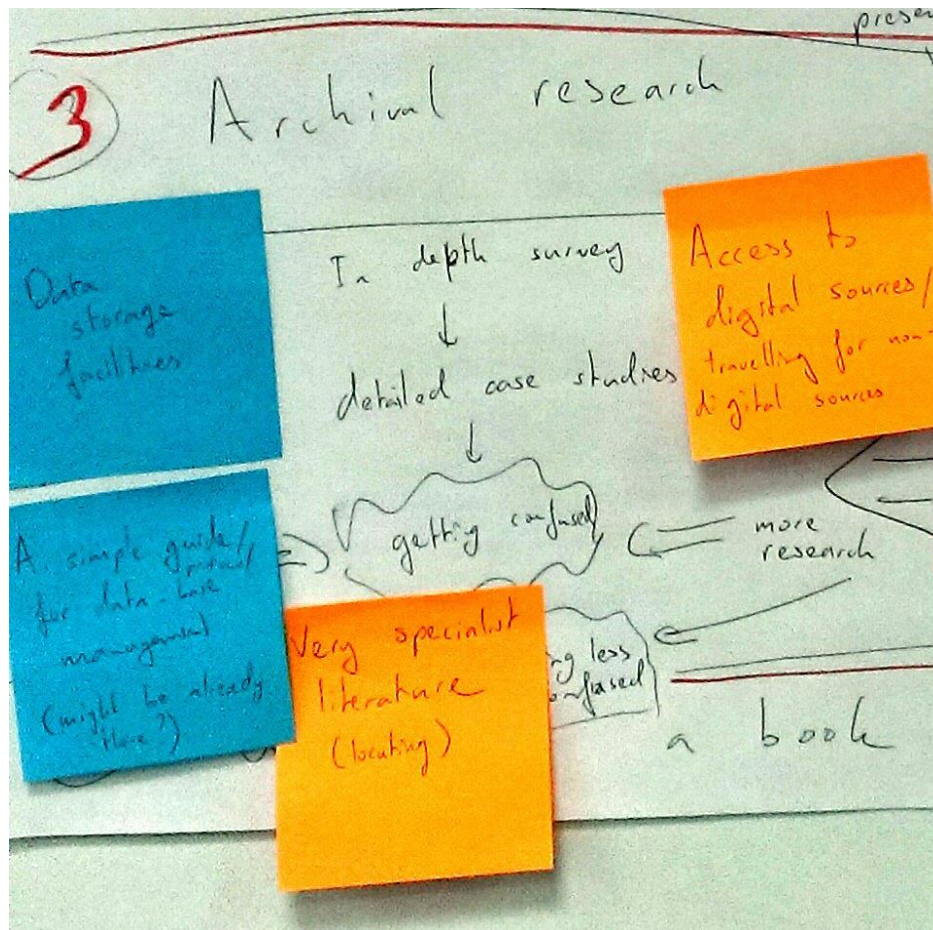 3 Archival research
Data
storage
facilities
In depth survey
↓
detailed case studies
↓
getting confused
Access to
digital sources/
travelling for non-
digital sources
more
research
A simple guide/
for data-base
management
(might be already
there?)
Very specialist
literature
(locating)
ng less
onfused
a book